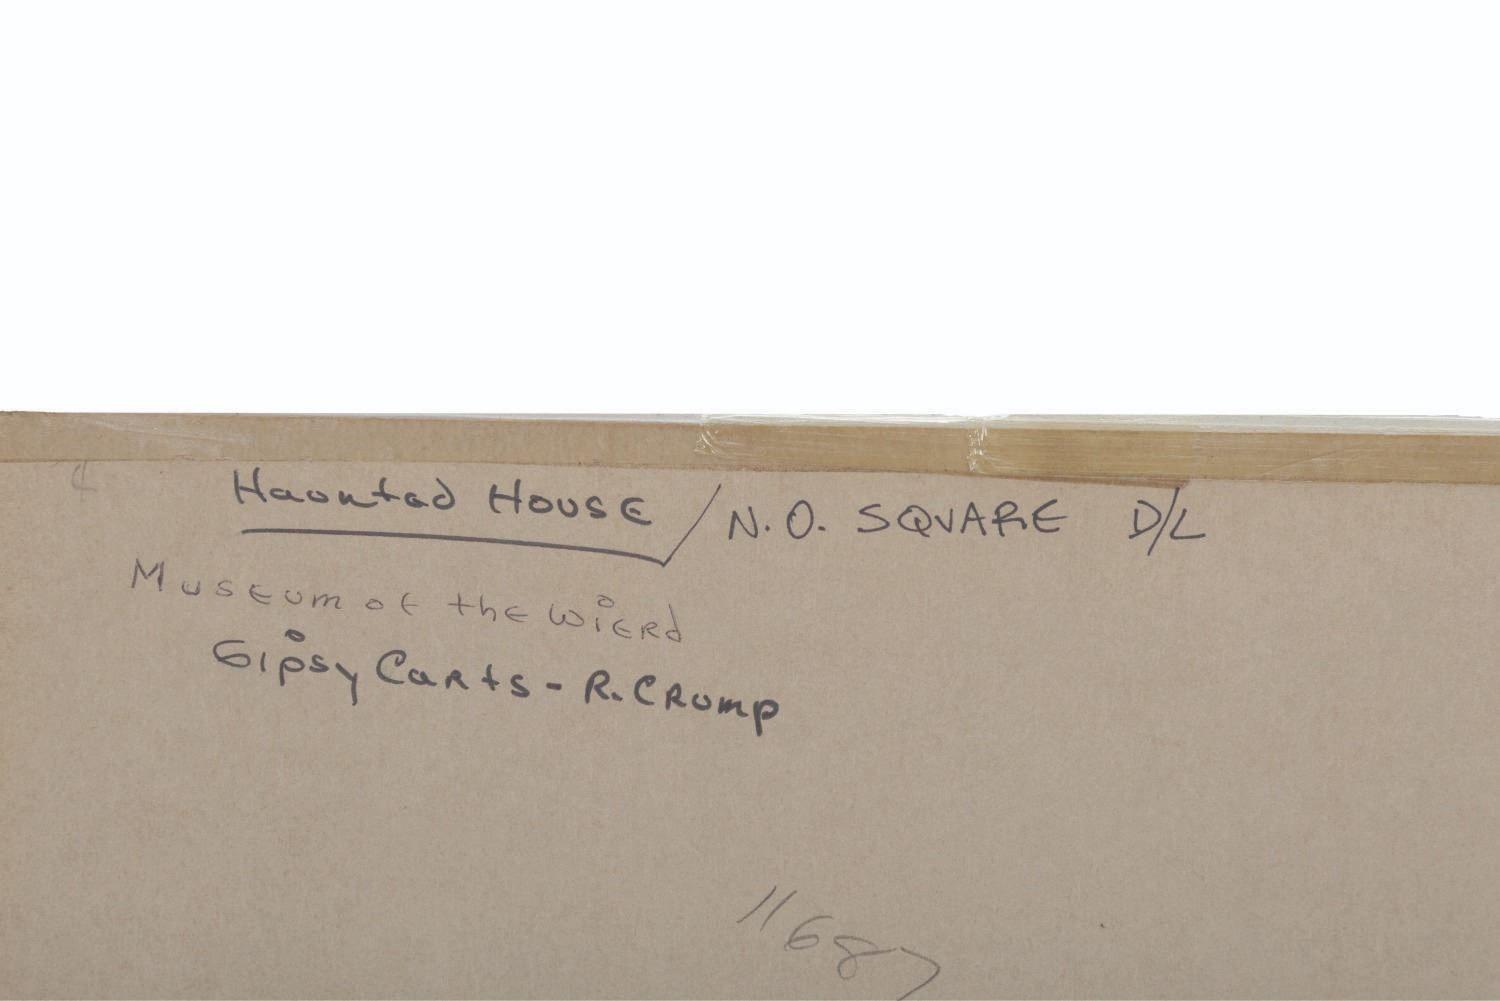 Haunted HOUSE / N.O. SQUARE D/L
MusEum of thE WiERd
Gipsy CaRts - R. CRump
11687